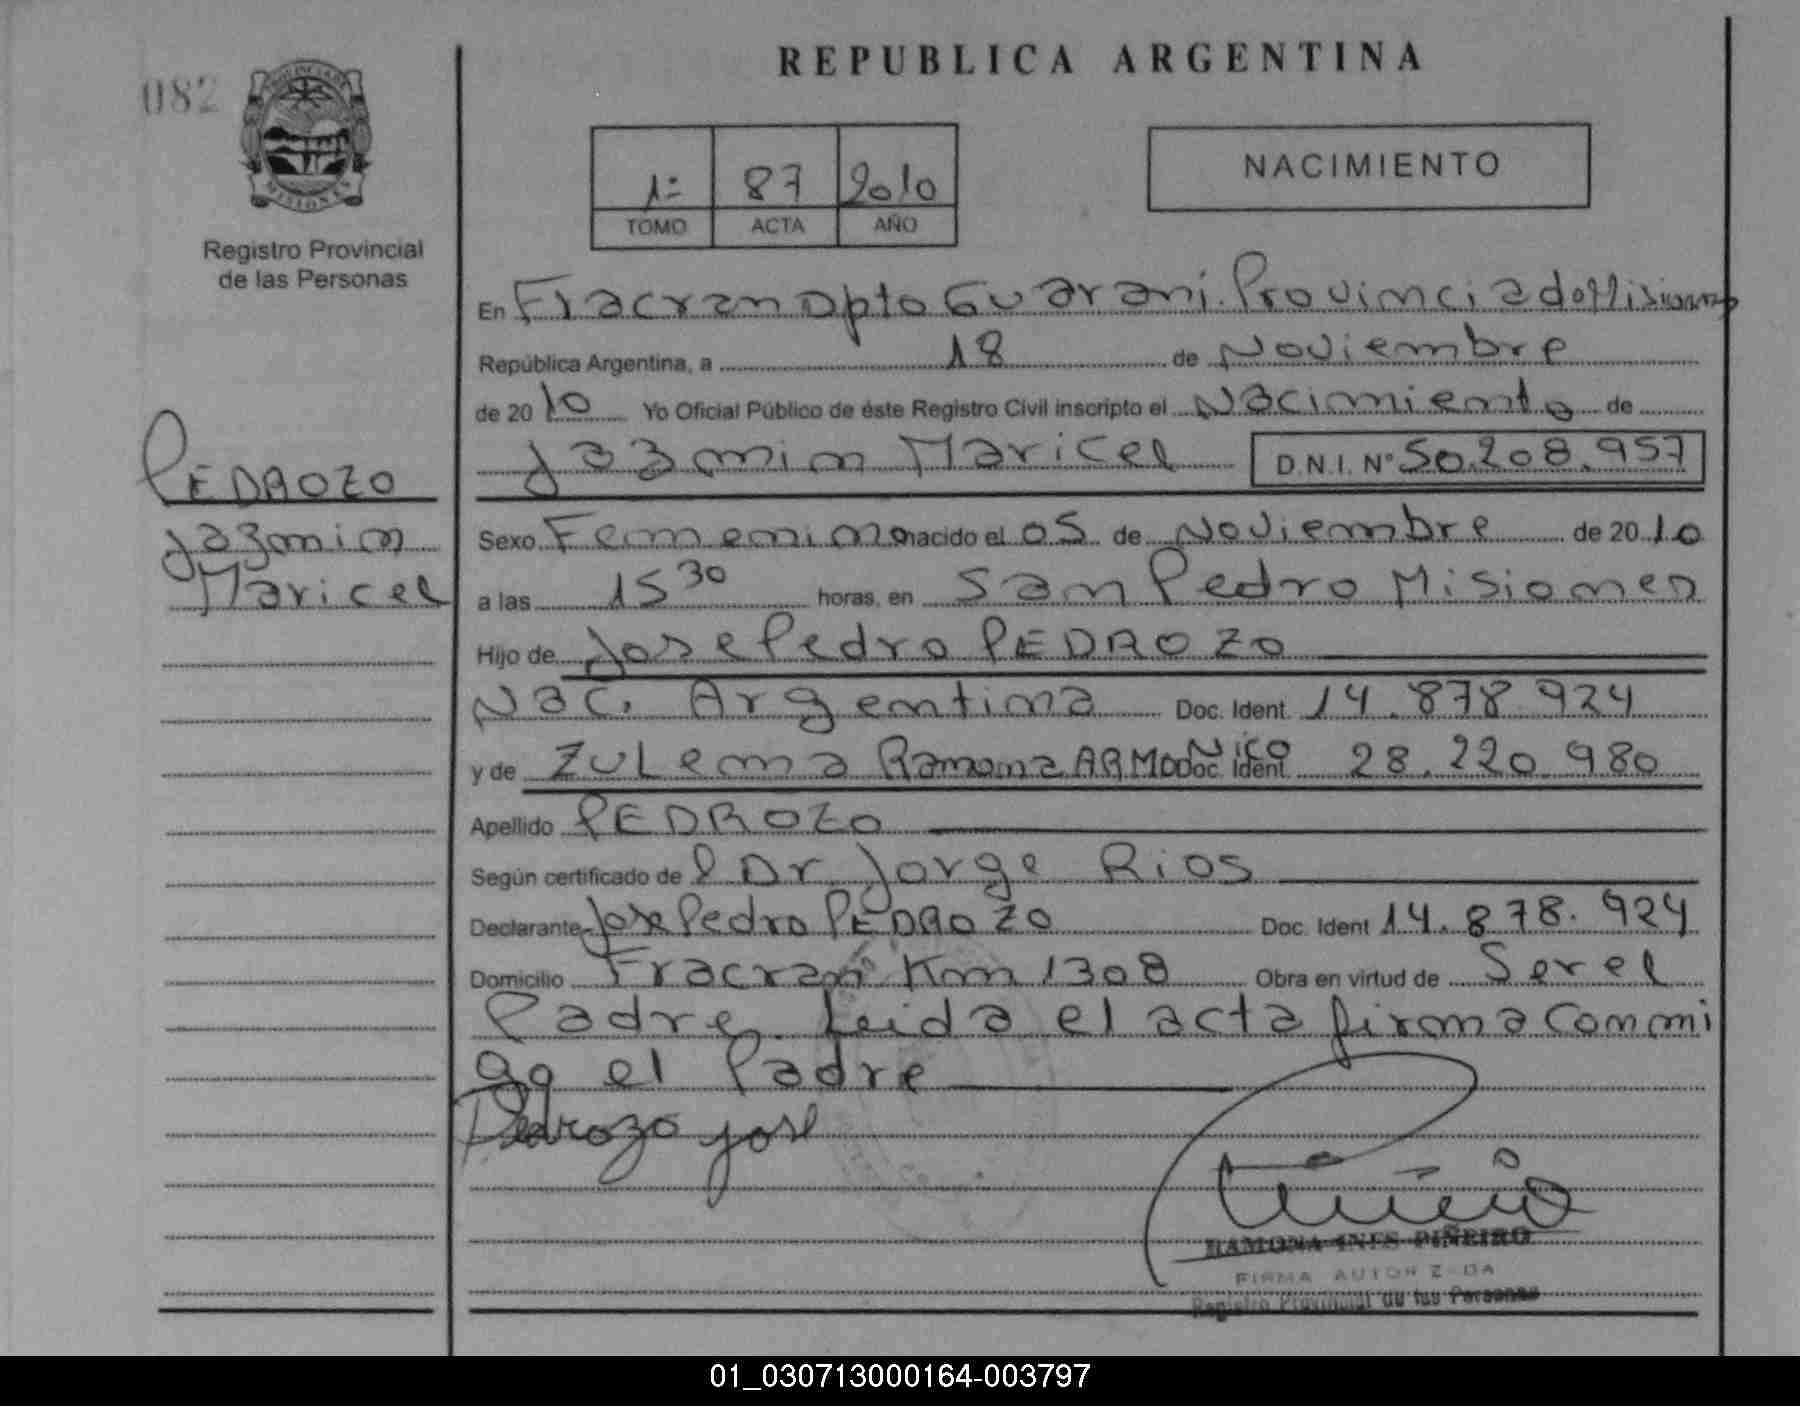 082
PROVINCIA DE
MISIONES
Registro Provincial
de las Personas
PEDROZO
Jazmin
Maricel
REPUBLICA ARGENTINA
1= 87 2010
TOMO ACTA AÑO
NACIMIENTO
En Fracran Dpto Guarani. Provincia de Misiones
República Argentina, a 18 de Noviembre
de 2010 Yo Oficial Público de éste Registro Civil inscripto el Nacimiento de
Jazmin Maricel D.N.I. Nº 50.208.957
Sexo Femenino nacido el 05 de Noviembre de 2010
a las 15 30 horas, en San Pedro Misiones
Hijo de Jose Pedro PEDROZO
Nac. Argentina Doc. Ident. 14.878.924
y de Zulema Ramona ARMONICO Doc. Ident. 28.220.980
Apellido PEDROZO
Según certificado de l Dr Jorge Rios
Declarante Jose Pedro PEDROZO Doc. Ident 14.878.924
Domicilio Fracran Km 1308 Obra en virtud de Ser el
Padre. Leida el acta firma conmi
go el Padre
Pedrozo jose
RAMONA INES PIÑEIRO
FIRMA AUTORIZADA
Registro Provincial de las Personas
01_030713000164-003797